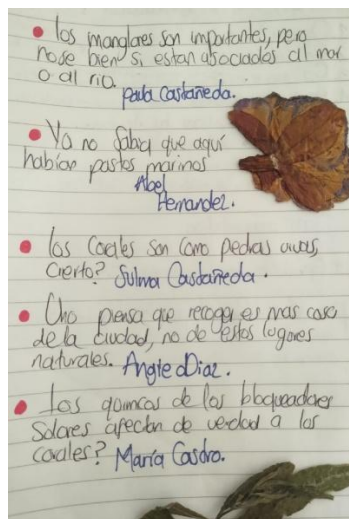 • los manglares son importantes, pero
nose bien si estan asociados al mar
o al rio.
paula Castañeda.
• Yo no sabia que aquí
habían pastos marinos
Abel
Hernandez.
• los Corales son como piedras vivas,
cierto? Sulma Castañeda.
• Uno piensa que recoger es mas cosa
de la ciudad, no de estos lugares
naturales. Angie Diaz.
• Los quimicos de los bloqueadores
Solares afectan de verdad a los
corales? María Castro.